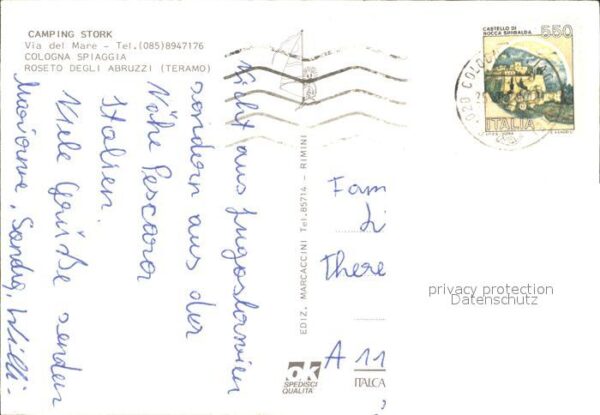 CAMPING STORK
Via del Mare - Tel.(085)8947176
COLOGNA SPIAGGIA
ROSETO DEGLI ABRUZZI (TERAMO)
Nicht aus Jugoslawien
sondern aus der
Nähe Pescara
Italien.
Viele Grüße senden
Marianne, Sandra, Willi.
EDIZ. MARCACCINI Tel.85714 - RIMINI
CASTELLO DI
ROCCA SINIBALDA
550
ITALIA
Fam
Li
There
A 11
privacy protection
Datenschutz
ok
SPEDISCI
QUALITA'
ITALCA